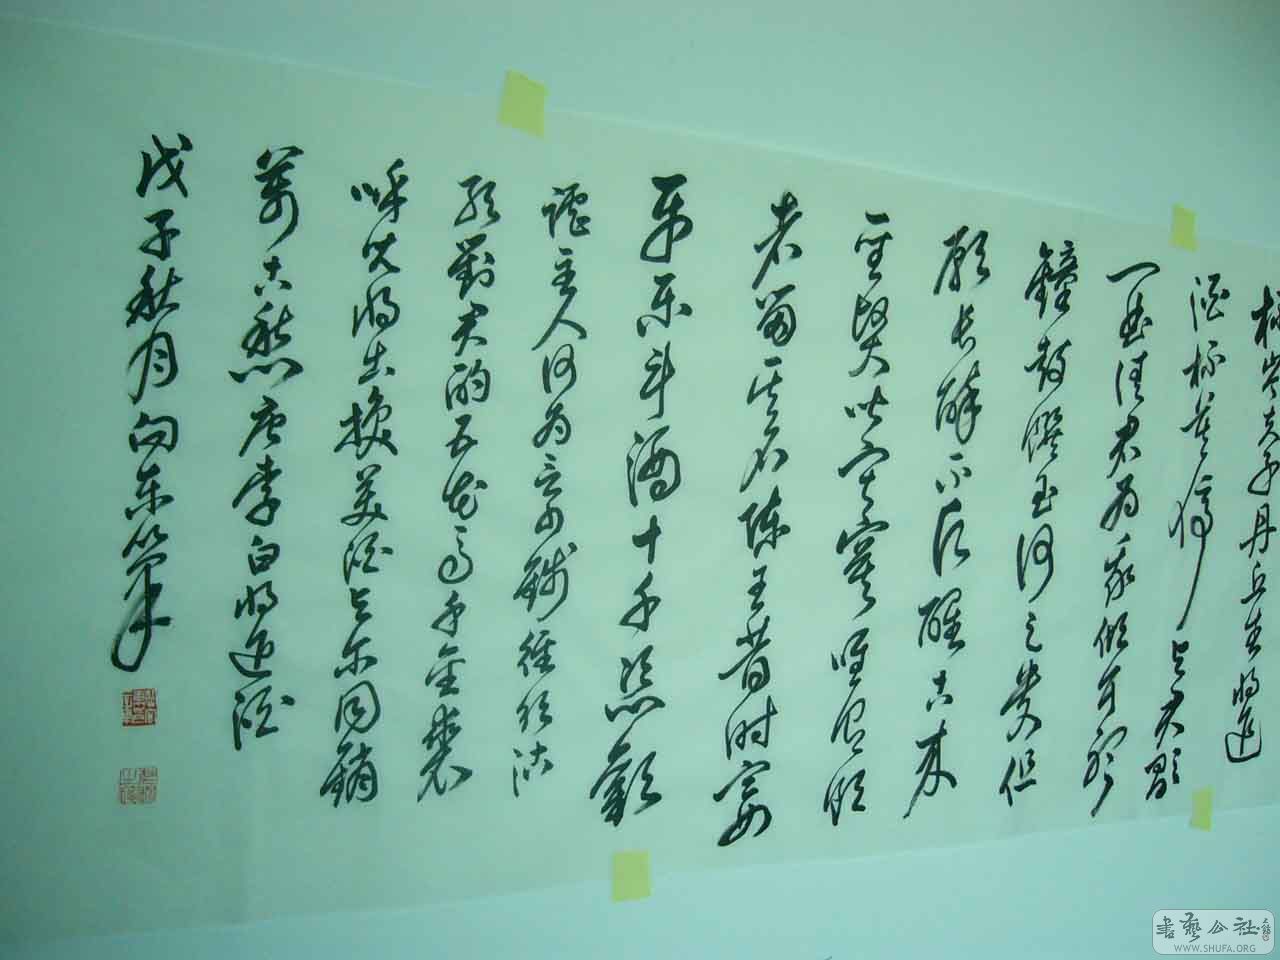 杯岑夫子丹丘生将进
酒杯莫停与君歌
一曲请君为我倾耳听
鐘鼓饌玉何足贵但
願长醉不愿醒古来
圣贤皆寂寞唯有饮
者留其名陈王昔时宴
平乐斗酒十千恣歡
谑主人何为言少钱径须沽
取對君酌五花马千金裘
呼儿将出换美酒与尔同銷
萬古愁唐李白将进酒
戊子秋月向东笔
書藝公社
WWW.SHUFA.ORG